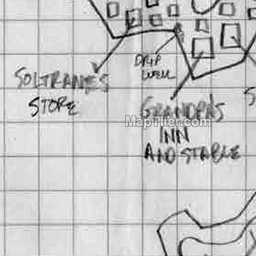 SOLTRANE'S
STORE
DRIP
WELL
GRANDPA'S
INN
AND STABLE
MapTiler.com
S